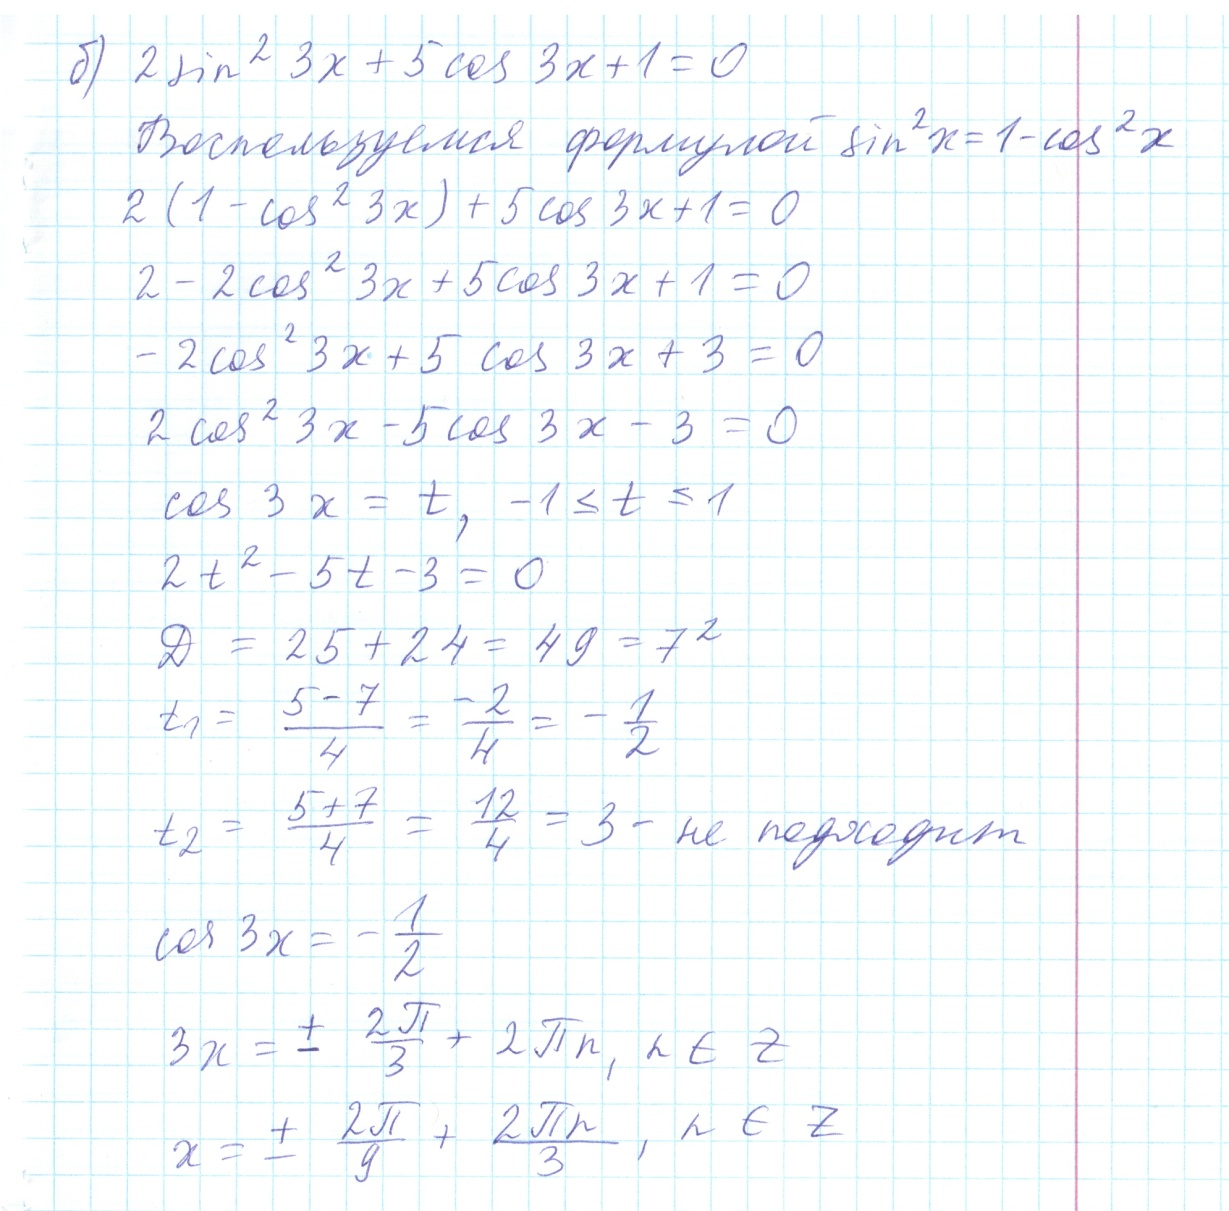 б) 2 sin² 3x + 5 cos 3x + 1 = 0
Воспользуемся формулой sin²x = 1 - cos²x
2 (1 - cos² 3x) + 5 cos 3x + 1 = 0
2 - 2 cos² 3x + 5 cos 3x + 1 = 0
- 2 cos² 3x + 5 cos 3x + 3 = 0
2 cos² 3x - 5 cos 3x - 3 = 0
cos 3x = t, -1 ≤ t ≤ 1
2t² - 5t - 3 = 0
D = 25 + 24 = 49 = 7²
t₁ = (5 - 7)/4 = -2/4 = - 1/2
t₂ = (5 + 7)/4 = 12/4 = 3 - не подходит
cos 3x = - 1/2
3x = ± 2π/3 + 2πn, n ∈ Z
x = ± 2π/9 + 2πn/3, n ∈ Z